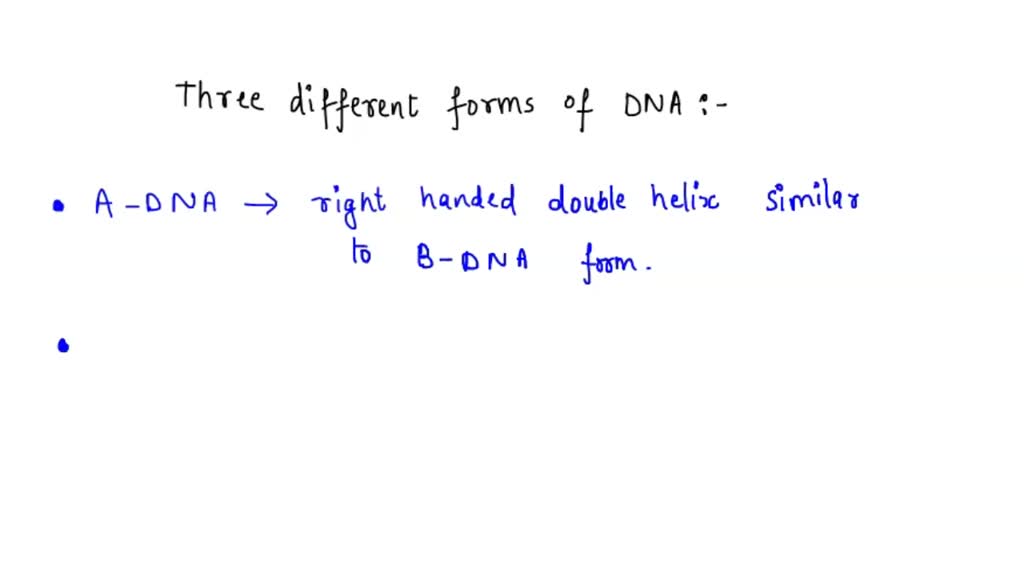 Three different forms of DNA :-
• A-DNA → right handed double helix similar
to B-DNA form.
•